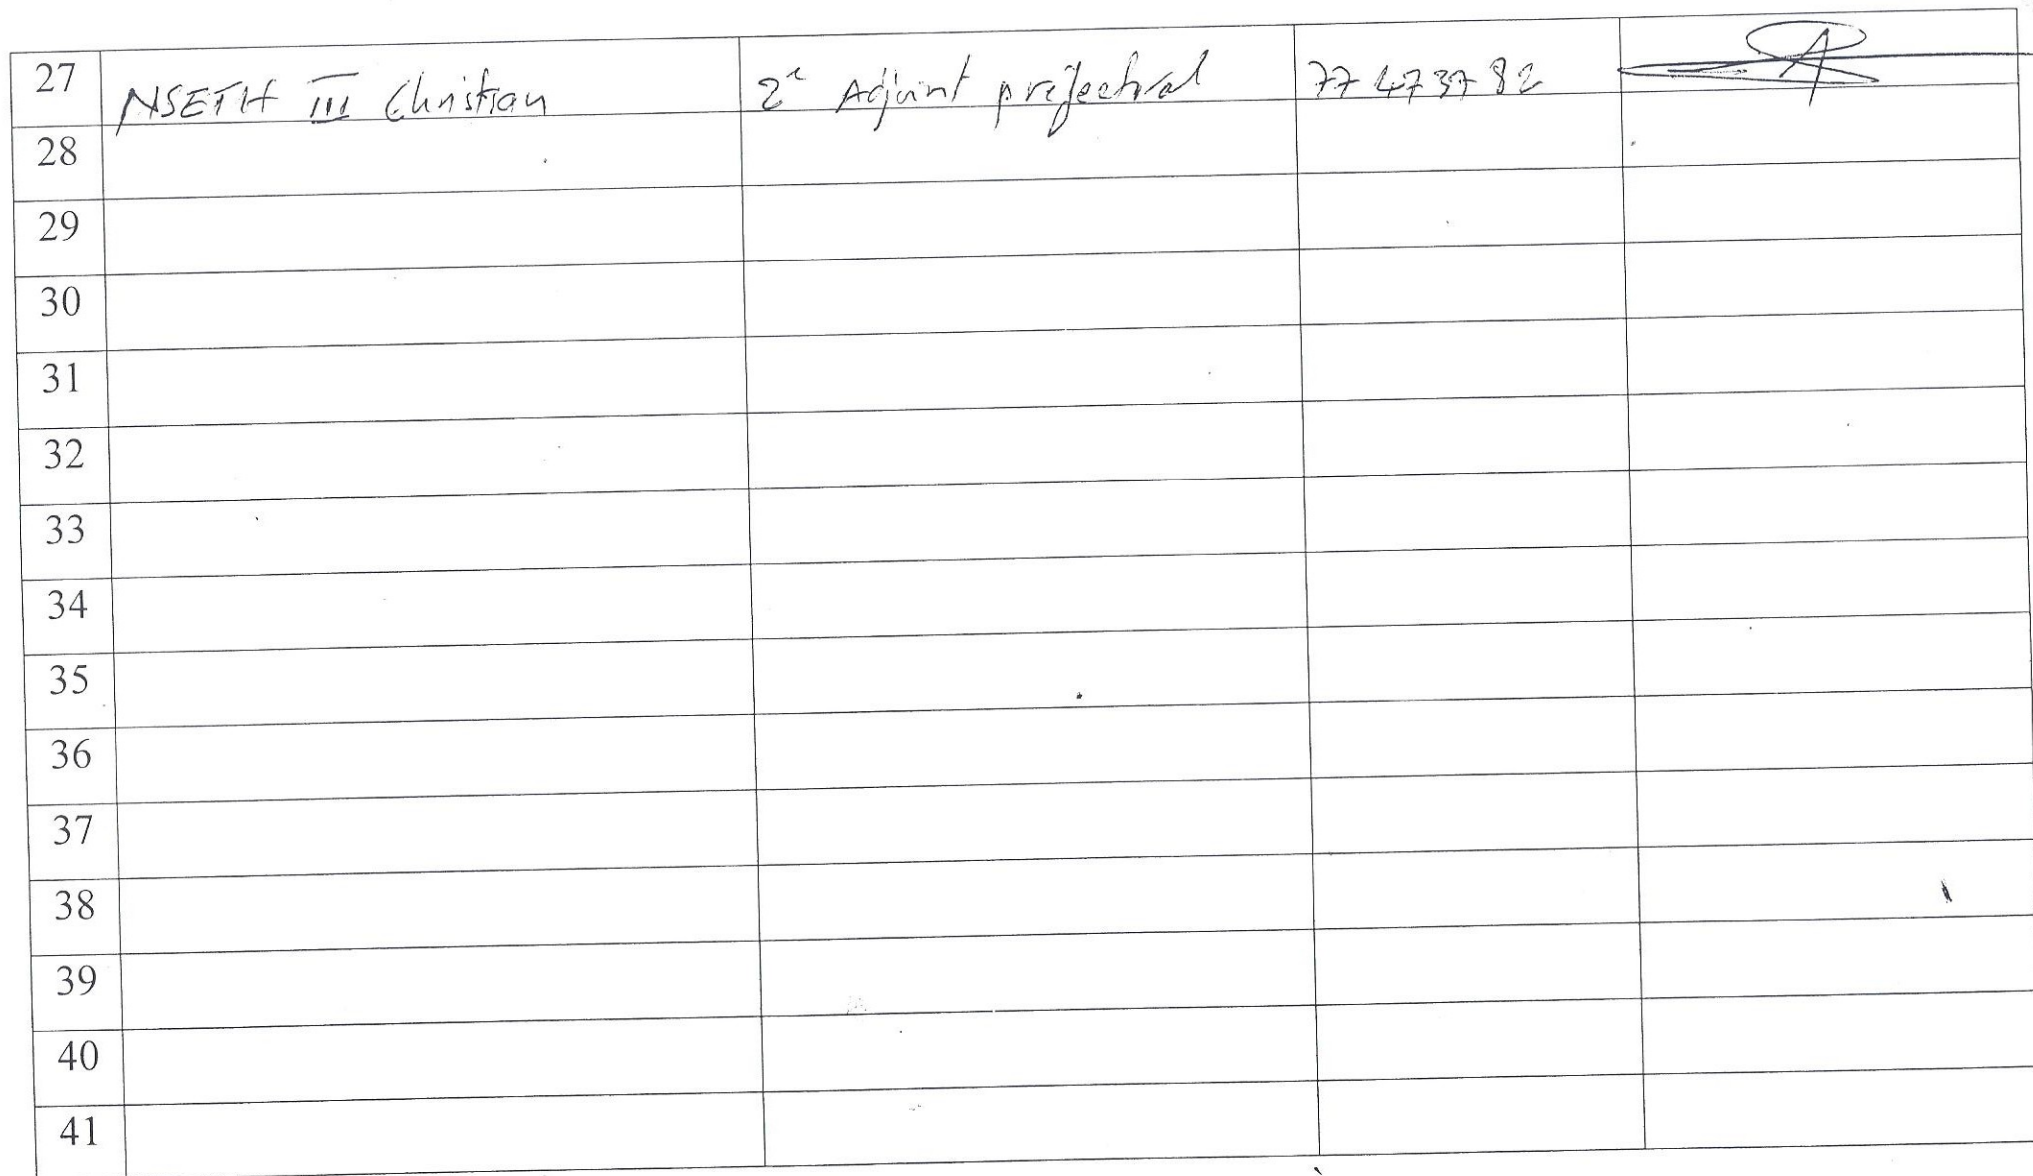 27 NSETH III Christian 2e Adjoint préfectoral 77 47 37 82
28
29
30
31
32
33
34
35
36
37
38
39
40
41